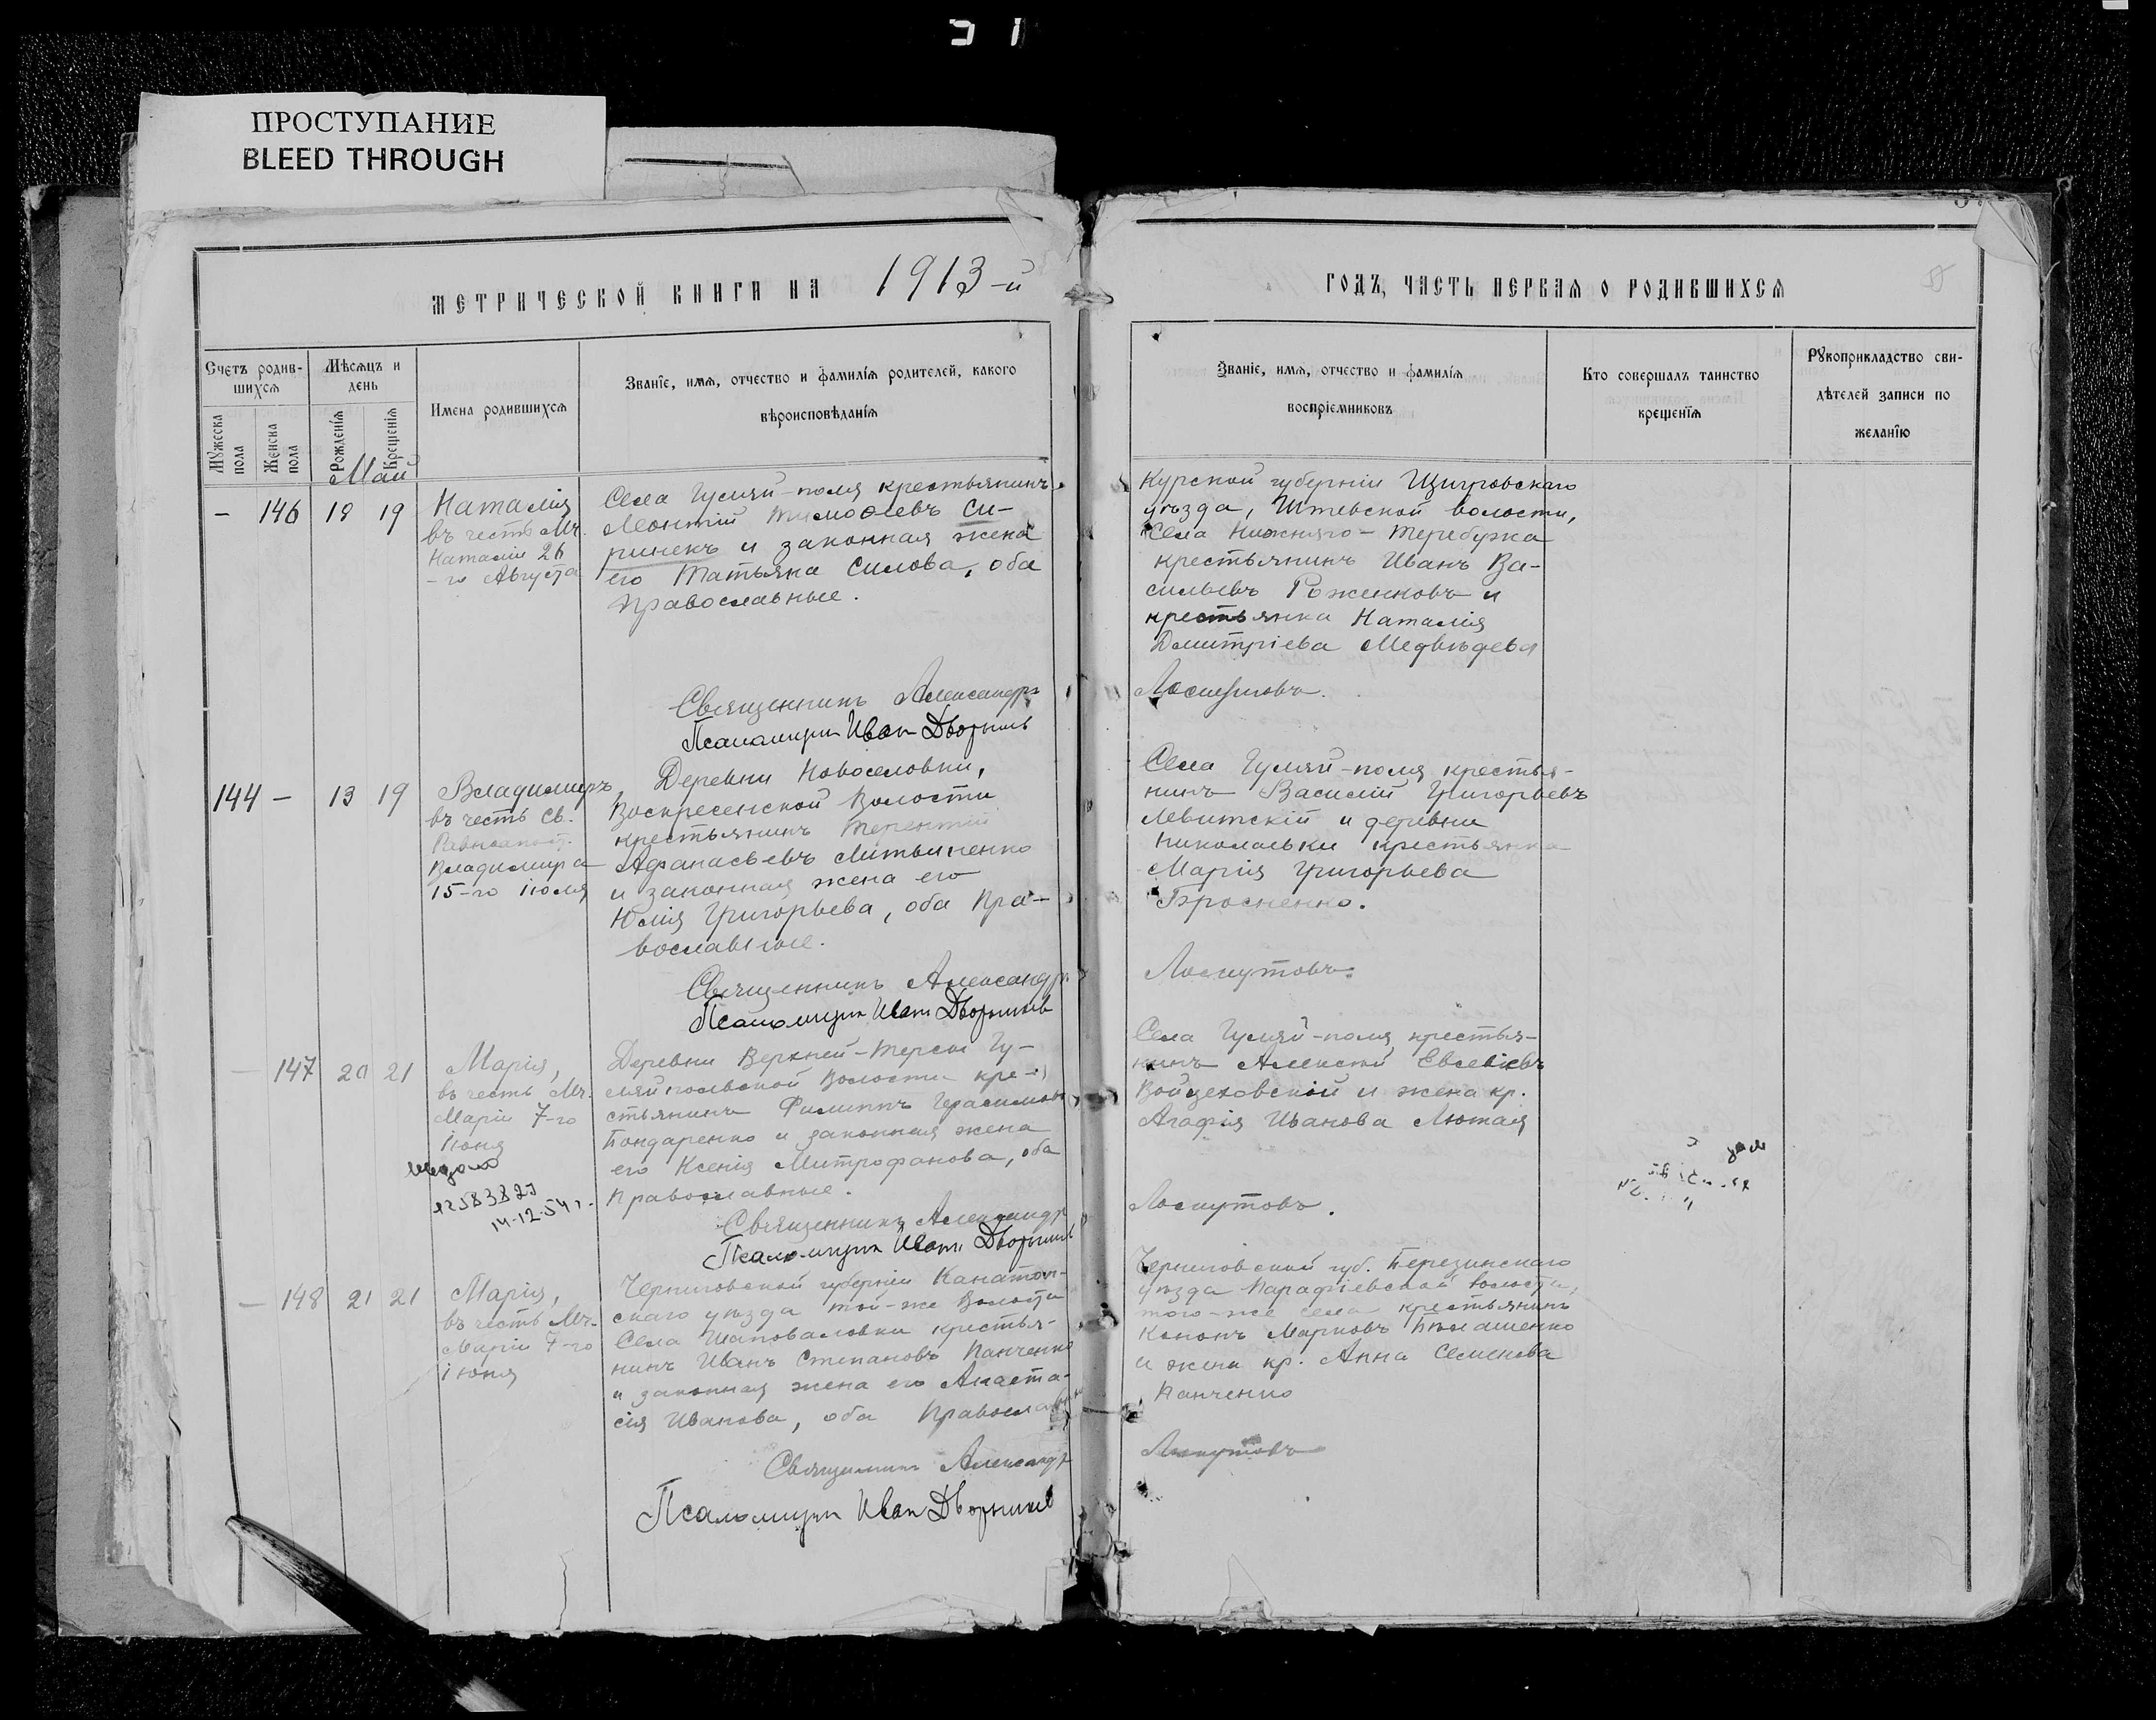 ПРОСТУПАНИЕ
BLEED THROUGH
МЕТРИЧЕСКОЙ КНИГИ НА 1913-й
ГОДЪ, ЧАСТЬ ПЕРВАЯ О РОДИВШИХСЯ
Счетъ родив-
шихся
Мужеска
пола
Женска
пола
Мѣсяцъ и
день
Рожденія
Крещенія
Имена родившихся
Званіе, имя, отчество и фамилія родителей, какого
вѣроисповѣданія
Званіе, имя, отчество и фамилія
воспріемниковъ
Кто совершалъ таинство
крещенія
Рукоприкладство сви-
дѣтелей записи по
желанію
Май
– 146 18 19
Наталія
въ честь Мч.
Наталіи 26
-го Августа
Села Гуляй-поля крестьянинъ
Леонтій Тимоѳеевъ Си-
ринекъ и законная жена
его Татьяна Силова, оба
православные.
Курской губерніи Щигровскаго
уѣзда, волости,
Села Нижняго-Теребужа
крестьянинъ Иванъ Ва-
сильевъ Роженковъ и
крестьянка Наталія
Дмитріева Медвѣдева
Священникъ Александръ
Лоскутовъ.
Псаломщикъ Иван
144 – 13 19
Владимиръ,
въ честь Св.
Равноапост.
Владимира
15-го іюля
Деревни Новоселовки,
Воскресенской Волости
крестьянинъ Терентій
Афанасьевъ Литвиненко
и законная жена его
Юлія Григорьева, оба Пра-
вославные.
Села Гуляй-поля крестья-
нинъ Василій Григорьевъ
Левитскій и деревни
Николаевки крестьянка
Марія Григорьева
Бросненко.
Священникъ Александръ
Лоскутовъ.
Псаломщикъ Иван
– 147 20 21
Марія,
въ честь Мч.
Маріи 7-го
Іюня
14-12-54 г.
Деревни Верхней-Терсы Гу-
ляйпольской Волости кре-
стьянинъ Филиппъ Герасимовъ
Бондаренко и законная жена
его Ксенія Митрофанова, оба
Православные.
Села Гуляй-поля крестья-
нинъ Алексѣй Евсевіевъ
Войцеховскій и жена кр.
Агафія Иванова Лютая
Священникъ Александръ
Лоскутовъ.
Псаломщикъ Иван
– 148 21 21
Марія,
въ честь Мч.
Маріи 7-го
іюня
Черниговской губерніи Канатоп-
скаго уѣзда той-же Волости
Села Шаповаловки крестья-
нинъ Иванъ Степановъ Панченко
и законная жена его Анаста-
сія Иванова, оба Православные
Черниговской губ. Березинскаго
уѣзда Парафіевской волости,
того-же села крестьянинъ
Кононъ Марковъ
и жена кр. Анна Семенова
Панченко
Священникъ Александръ
Лоскутовъ
Псаломщикъ Иван